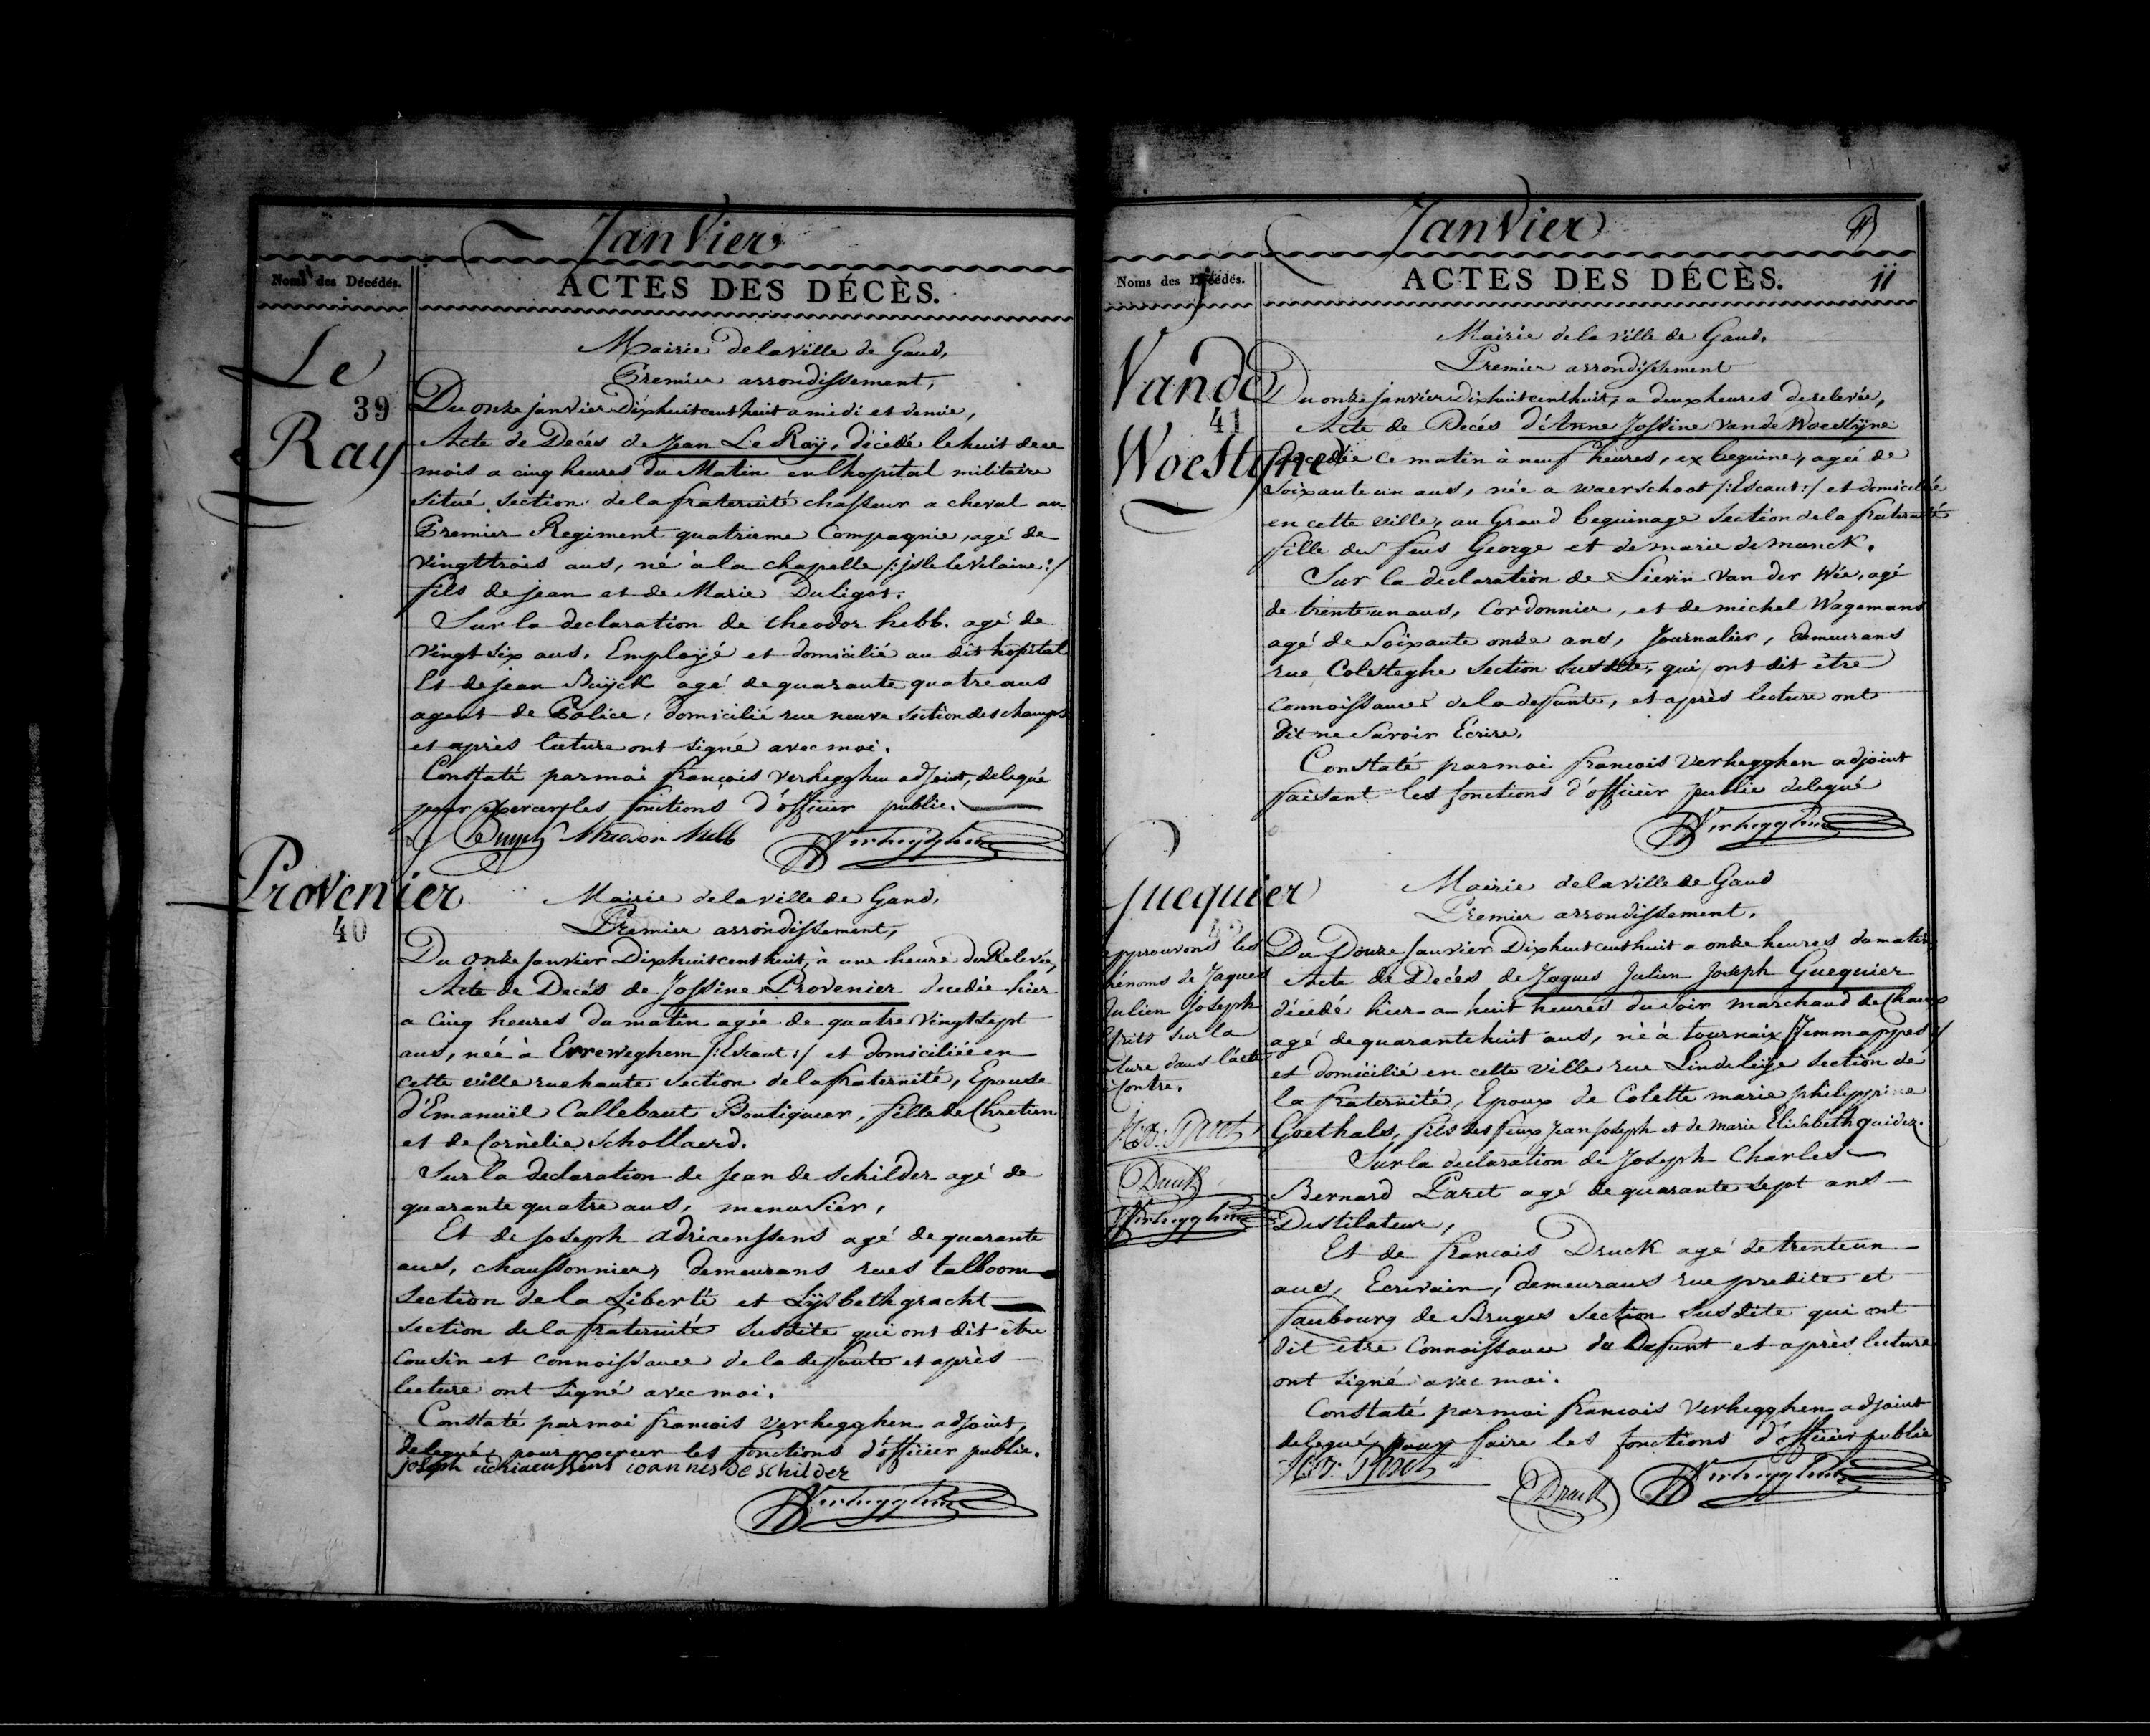 JanVier
Noms des Décédés.
ACTES DES DÉCÈS.
Le
39
Ray
Mairie de la ville de Gand,
Premier arrondissement,
Du onze janvier Dixhuitcent huit a midi et demie,
Acte de Decés de Jean Le Raÿ, décédé le huit de ce
mois a cinq heures du Matin en l'hopital militaire
situé section de la fraternité chasseur a cheval au
Premier Regiment quatrieme Compagnie, agé de
vingttrois ans, né à la chapelle /: jslle le Vilaine :/
fils de jean et de Marie Duligot.
Sur la declaration de theodor hebb. agé de
vingt six ans. Employé et domicilié au dit hopital
Et de jean Buÿck agé de quarante quatre ans
agent de Police, domicilié rue neuve section des champs
et après lecture ont signé avec moi.
Constaté par moi françois Verhegghen adjoint, delegué
pour exercer les fonctions d'officier public.
Buyck
Verhegghen
Provenier
40
Mairie de la ville de Gand,
Premier arrondissement,
Du onze Janvier Dixhuitcent huit, à une heure de Relevée,
Acte de Decés de Jossine Provenier decedée hier
a Cinq heures du matin agée de quatre Vingt sept
ans, née à Erreweghem /: Escaut :/ et domiciliée en
cette ville rue haute section de la fraternité, Epouse
d'Emanuël Callebaut Boutiquier, fille de Chretien
et de Cornélie Schollaerd.
Sur la declaration de Jean de Schilder agé de
quarante quatre ans, menusier,
Et de Joseph adriaenssens agé de quarante
ans, chaussonnier, demeurans rues talboom
section de la Liberté et Lÿsbethgracht
section de la fraternité susdite qui ont dit être
Cousin et connoissance de la deffunte et après
lecture ont signé avec moi.
Constaté par moi francois Verhegghen adjoint,
delegué pour exercer les fonctions d'officier public.
joseph adriaenssens ioannis de schilder
Verhegghen
JanVier
11
Noms des Décédés.
ACTES DES DÉCÈS.
Vande
41
Woestyne
Mairie de la ville de Gand.
Premier arrondissement
Du onze janvier dixhuitcent huit, a deux heures de relevée,
Acte de Décés d'Anne Jossine Van de Woestÿne
Decedée ce matin à neuf heures, ex beguine, ageé de
soixante un ans, née a waerschoot /: Escaut :/ et domiciliée
en cette ville, au Grand beguinage section de la fraternité
fille des feus George et de marie de munck.
Sur la declaration de Lievin Van der Wée, agé
de trente un ans, Cordonnier, et de michel Wagemans
agé de Soixante onze ans, Journalier, demeurans
rue Colsteghe section susdite, qui ont dit être
Connoissances de la defunte, et après lecture ont
dit ne savoir Écrire.
Constaté par moi francois Verhegghen adjoint
faisant les fonctions d'officier public delegué
Verhegghen
Guequier
42
approuvons les
prénoms de Jaques
Julien Joseph
Ecrits sur la
rature dans l'acte
cicontre.
Druck
Verhegghen
Mairie de la ville de Gand
Premier arrondissement,
Du Douze Janvier Dixhuitcent huit a onze heures du matin
Acte de Decés de Jaques Julien Joseph Guequier
décédé hier a huit heures du soir marchand de Chaux
agé de quarantehuit ans, né à tournaix /: Jemmappes :/
et domicilié en cette ville rue Lindeleÿe section de
la fraternité, Epoux de Colette marie philippine
Goethals, fils des feux Jean Joseph et de Marie Elisabeth quidez.
Sur la declaration de Joseph Charles
Bernard Paret agé de quarante sept ans
Distilateur,
Et de francois Druck agé de trente un
ans, Ecrivain, demeurans rue predite et
faubourg de Bruges section susdite qui ont
dit être Connoissance du Defunt et après lecture
ont signé avec moi.
Constaté par moi francois Verhegghen adjoint
delegué pour faire les fonctions d'officier public
Druck
Verhegghen